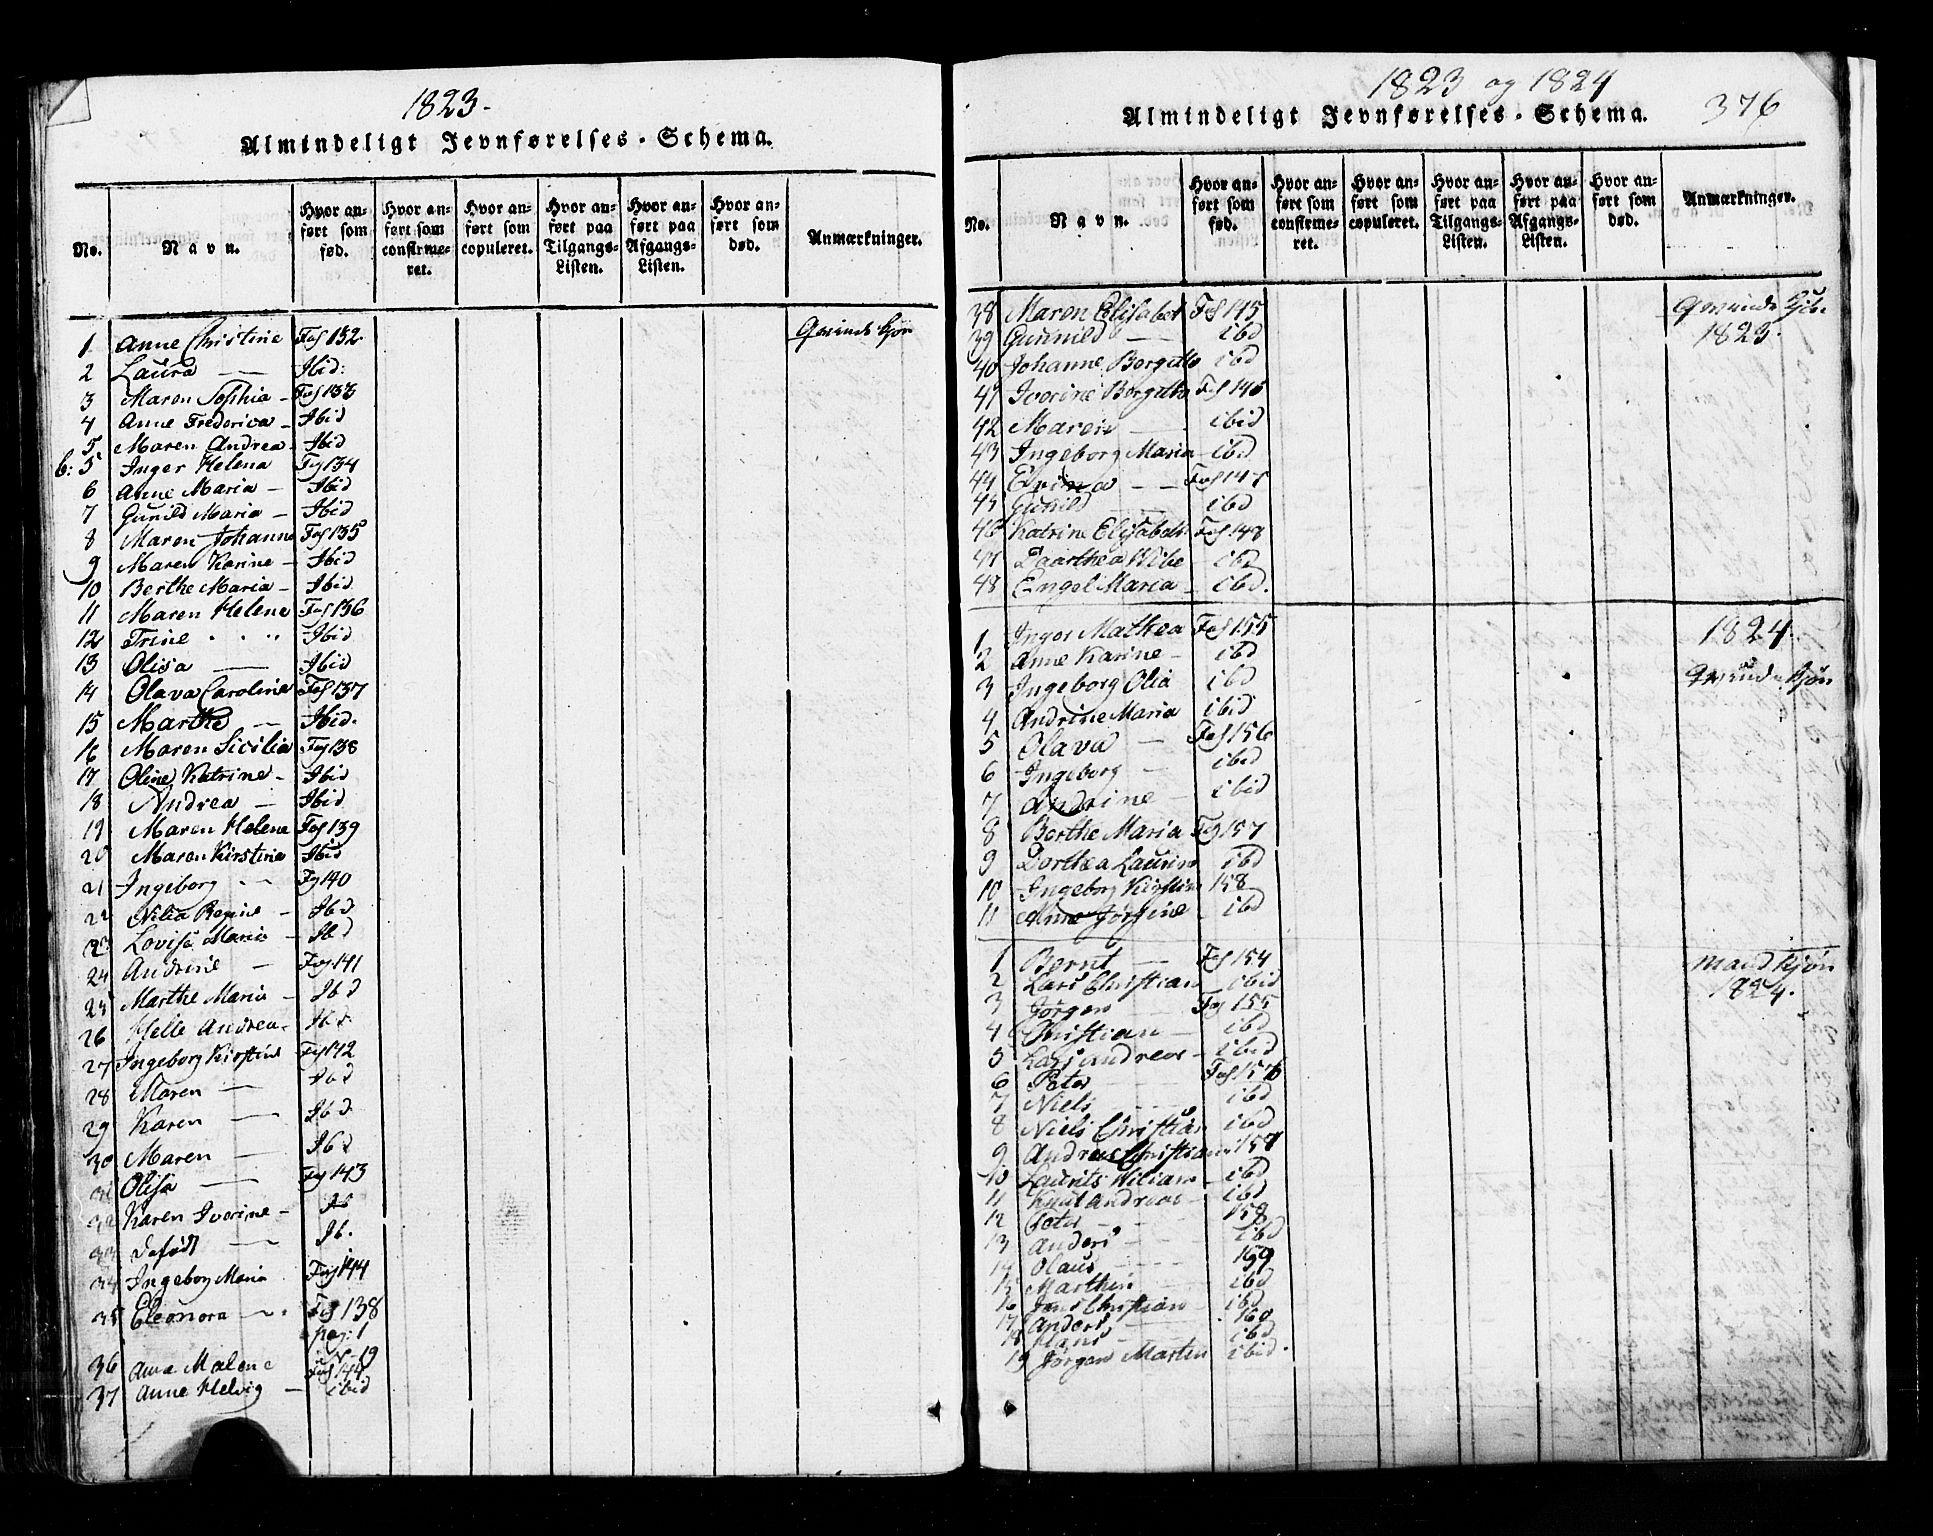 1823.
Almindeligt Jevnførelses-Schema.
No.
Navn.
Hvor anført som fød.
Hvor anført som confirmeret.
Hvor anført som copuleret.
Hvor anført paa Tilgangs-Listen.
Hvor anført paa Afgangs-Listen.
Hvor anført som død.
Anmærkninger.
Qvinde Kjøn
1 Anne Christine Fol 132.
2 Laura — Ibid:
3 Maren Sophia - Fol 133
4 Anne Frederica - Ibid
5 Maren Andrea - Ibid
b: 5 Inger Helena Fol 134
6 Anne Maria — Ibid
7 Gunild Maria — Ibid
8 Maren Johanne Fol 135
9 Maren Karine - Ibid
10 Berthe Maria - Ibid
11 Maren Helene Fol 136
12 Trine Ibid
13 Olisa — Ibid
14 Olava Carolina Fol 137
15 Marthe — Ibid.
16 Maren Sicilia Fol 138
17 Oline Katrine - Ibid
18 Andrea — Ibid
19 Maren Helene Fol 139
20 Maren Kirstine Ibid
21 Ingeborg Fol 140
22 Regine - Ibd
23 Lovise Maria - Ibd
24 Andrine — Fol 141
25 Marthe Maria - Ibd
26 Helle Andrea Ibd
27 Ingeborg Kirstine Fol 142
28 Maren — Ibd
29 Karen — Ibd
30 Maren — Ibd
31 Olisa — Fol 143
32 Karen Ivorine - Ib
33 Døfødt — Ib.
34 Ingeborg Maria Fol 144
35 Eleonora Fol 138
pag: 1
N 19
36 Ane Malene Fol 144
37 Anne Helvig — ibid
1823 og 1824
376
Almindeligt Jevnførelses-Schema.
No.
Navn.
Hvor anført som fød.
Hvor anført som confirmeret.
Hvor anført som copuleret.
Hvor anført paa Tilgangs-Listen.
Hvor anført paa Afgangs-Listen.
Hvor anført som død.
Anmærkninger.
38 Maren Elisabet Fol 145 Qvinde Kjön
39 Gunnild — ibd 1823.
40 Johanne Borgitte ibd
41 Ivorine Borgitte Fol 146
42 Maren — ibid
43 Ingeborg Maria - ibd
44 — Fol 147
45 Gunild — ibd
46 Katrine Elisabeth Fol 148
47 Daarthea Wibe ibd
48 Engel Maria - ibd.
1 Inger Mathea Fol 155 1824.
2 Anne Karine - ibd Qvinde Kjøn
3 Ingeborg Olia ibd
4 Andrine Maria ibid
5 Olava — Fol 156
6 Ingeborg — ibid
7 Andrine — ibid
8 Berthe Maria Fol 157
9 Dorthea Laurine ibd
10 Ingeborg Kirstine 158
11 Anne Jörgine - ibd
1 Bernt — Fol 154 Mand Kjøn
2 Lars Christian ibid 1824.
3 Jørgen Fol 155
4 Christian — ibd
5 Lars Andreas - ibid
6 Peter Fol 156
7 Niels ibd
8 Niels Christian ibd
9 Andreas Christian 157
10 Laurits Wiliam ibd
11 Knut Andreas - ibd
12 Peter 158
13 Anders ibd
14 Olaus 159
15 Marthin ibd
16 Jens Christian ibd
17 Anders 160
18 Hans ibd
19 Jørgen Marten ibid.